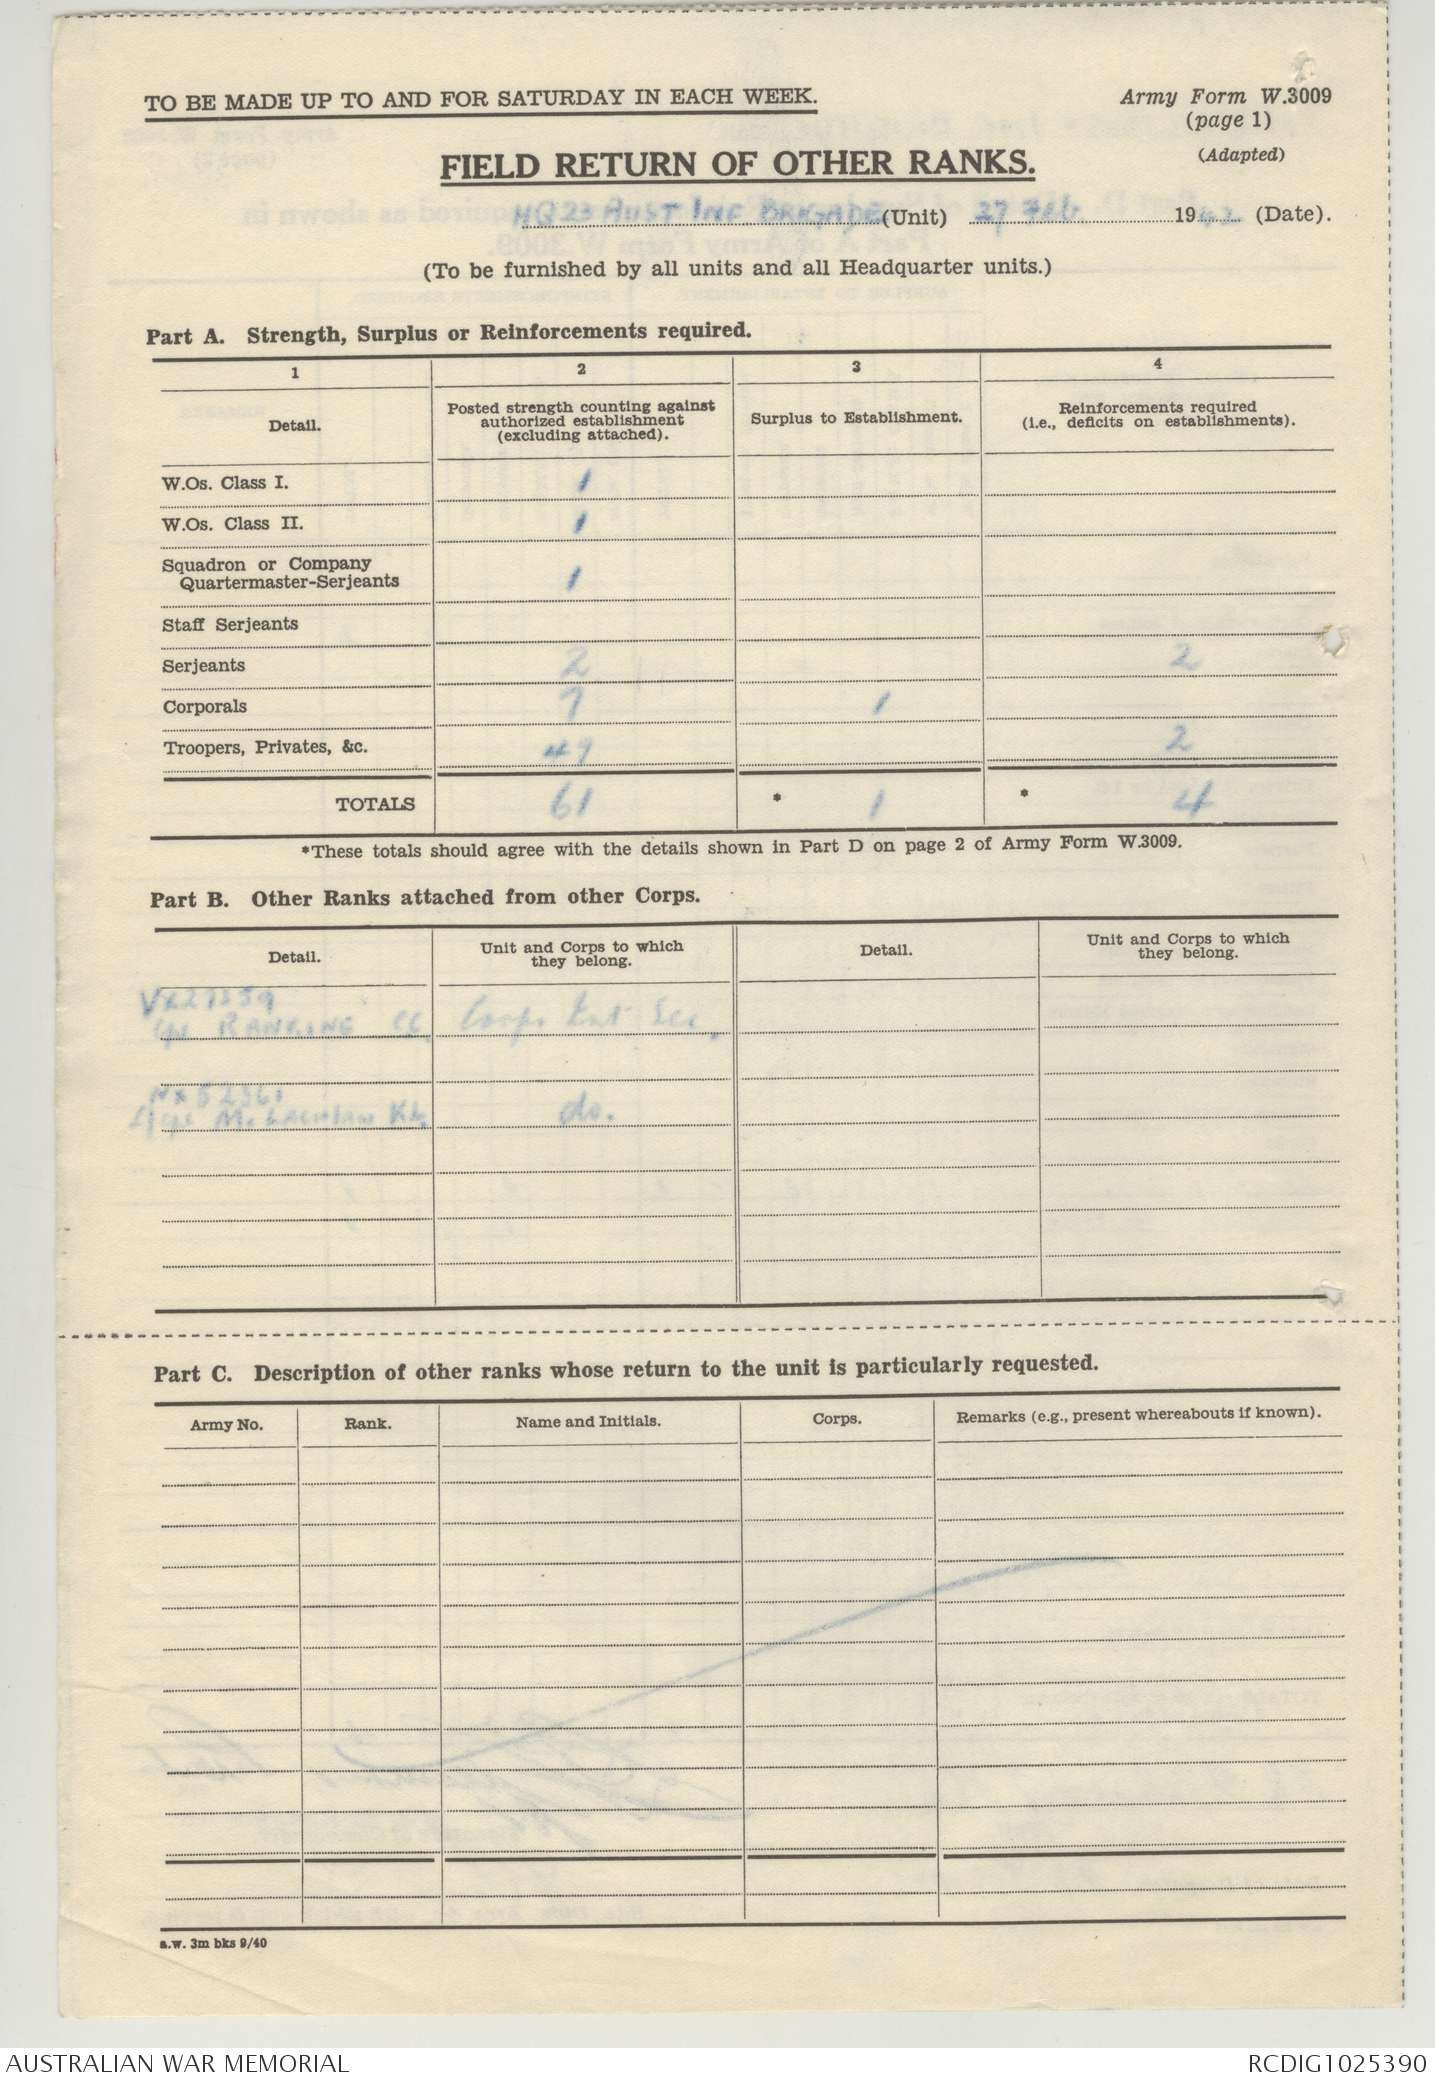 TO BE MADE UP TO AND FOR SATURDAY IN EACH WEEK.
Army Form W.3009
(page 1)
(Adapted)
FIELD RETURN OF OTHER RANKS.
HQ 23 AUST INF BRIGADE (Unit) 27 Feb 1942 (Date).
(To be furnished by all units and all Headquarter units.)
Part A. Strength, Surplus or Reinforcements required.
1 2 3 4
Detail.
Posted strength counting against
authorized establishment
(excluding attached).
Surplus to Establishment.
Reinforcements required
(i.e., deficits on establishments).
W.Os. Class I. 1
W.Os. Class II. 1
Squadron or Company
Quartermaster-Serjeants 1
Staff Serjeants
Serjeants 2 2
Corporals 7 1
Troopers, Privates, &c. 49 2
TOTALS 61 * 1 * 4
*These totals should agree with the details shown in Part D on page 2 of Army Form W.3009.
Part B. Other Ranks attached from other Corps.
Detail.
Unit and Corps to which
they belong.
Detail.
Unit and Corps to which
they belong.
VX27359
Cpl RANKINE CC. Corps Int Sec.
L/Cpl McLACHLAN do.
Part C. Description of other ranks whose return to the unit is particularly requested.
Army No. Rank. Name and Initials. Corps. Remarks (e.g., present whereabouts if known).
a.w. 3m bks 9/40
AUSTRALIAN WAR MEMORIAL
RCDIG1025390